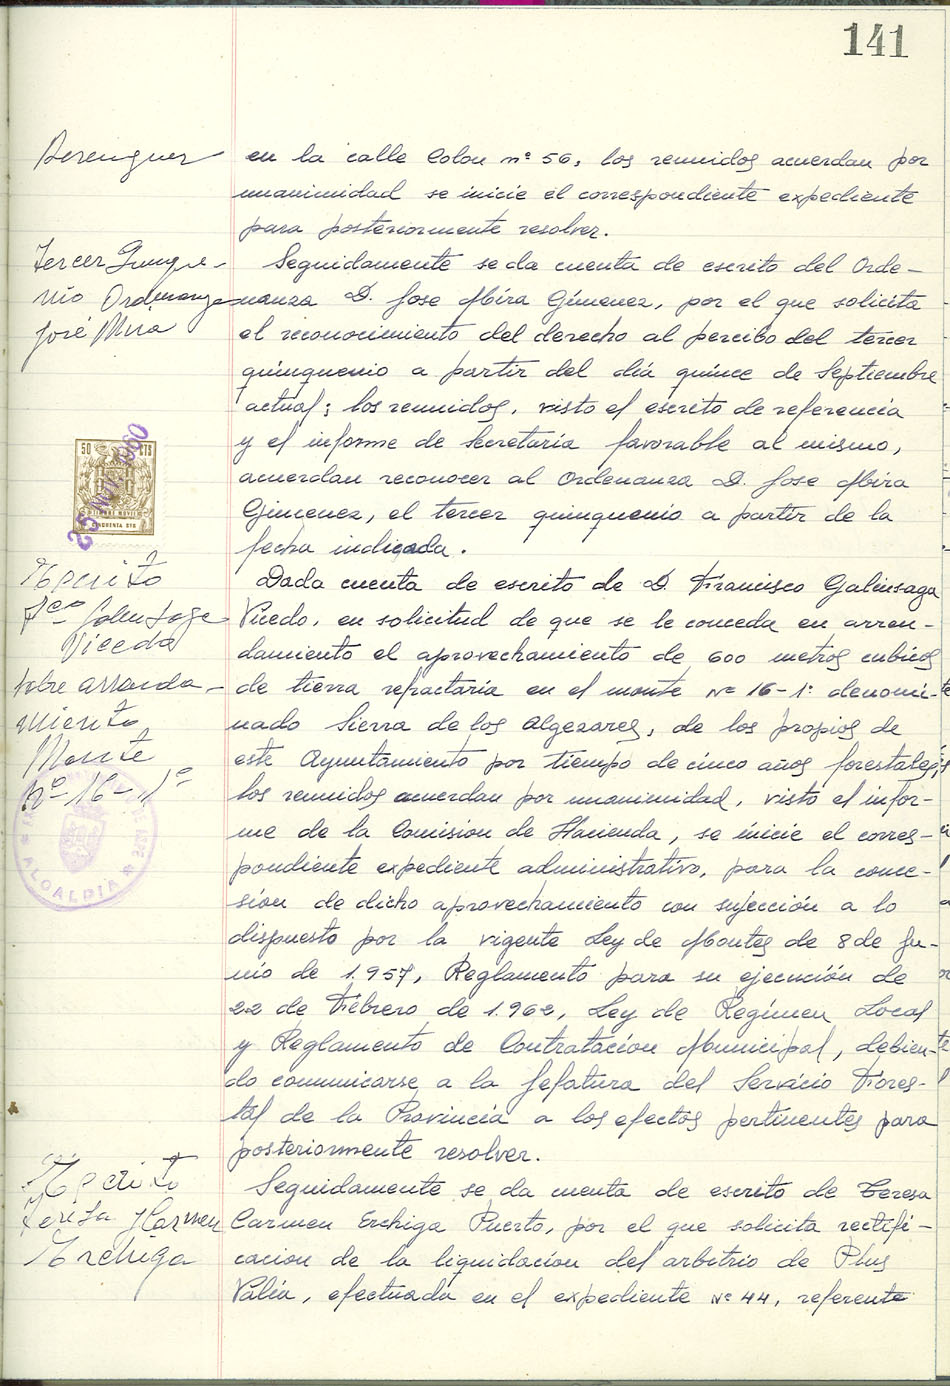 141
Berenguer
en la calle Colon nº 56, los reunidos acuerdan por
unanimidad se inicie el correspondiente expediente
para posteriormente resolver.
Tercer Quinque-
nio Ordenanza
José Mira
Seguidamente se da cuenta de escrito del Orde-
nanza D. Jose Mira Gimenez, por el que solicita
el reconocimiento del derecho al percibo del tercer
quinquenio a partir del día quince de Septiembre
actual; los reunidos, visto el escrito de referencia
y el informe de Secretaría favorable al mismo,
acuerdan reconocer al Ordenanza D. Jose Mira
Gimenez, el tercer quinquenio a partir de la
fecha indicada.
50 CTS
TIMBRE MOVIL
CINCUENTA CTS
25 NOV. 1960
Escrito
Fco Galinsoga
Vicedo
sobre arrenda-
miento
Monte
Nº 16-1º
Dada cuenta de escrito de D. Francisco Galinsoga
Vicedo, en solicitud de que se le conceda en arren-
damiento el aprovechamiento de 600 metros cubicos
de tierra refractaria en el monte Nº 16-1º denomi-
nado Sierra de los Algezares, de los propios de
este Ayuntamiento por tiempo de cinco años forestales,
los reunidos acuerdan por unanimidad, visto el infor-
me de la Comision de Hacienda, se inicie el corres-
pondiente expediente administrativo, para la conce-
sión de dicho aprovechamiento con sujección a lo
dispuesto por la vigente Ley de Montes de 8 de Ju-
nio de 1.957, Reglamento para su ejecución de
22 de Febrero de 1.962, Ley de Regimen Local
y Reglamento de Contratacion Municipal, debien-
do comunicarse a la Jefatura del Servicio Fores-
tal de la Provincia a los efectos pertinentes para
posteriormente resolver.
ALCALDIA
DE ASPE
Escrito
Teresa Carmen
Erchiga
Seguidamente se da cuenta de escrito de Teresa
Carmen Erchiga Puerto, por el que solicita rectifi-
cacion de la liquidacion del arbitrio de Plus
Valía, efectuada en el expediente Nº 44, referente